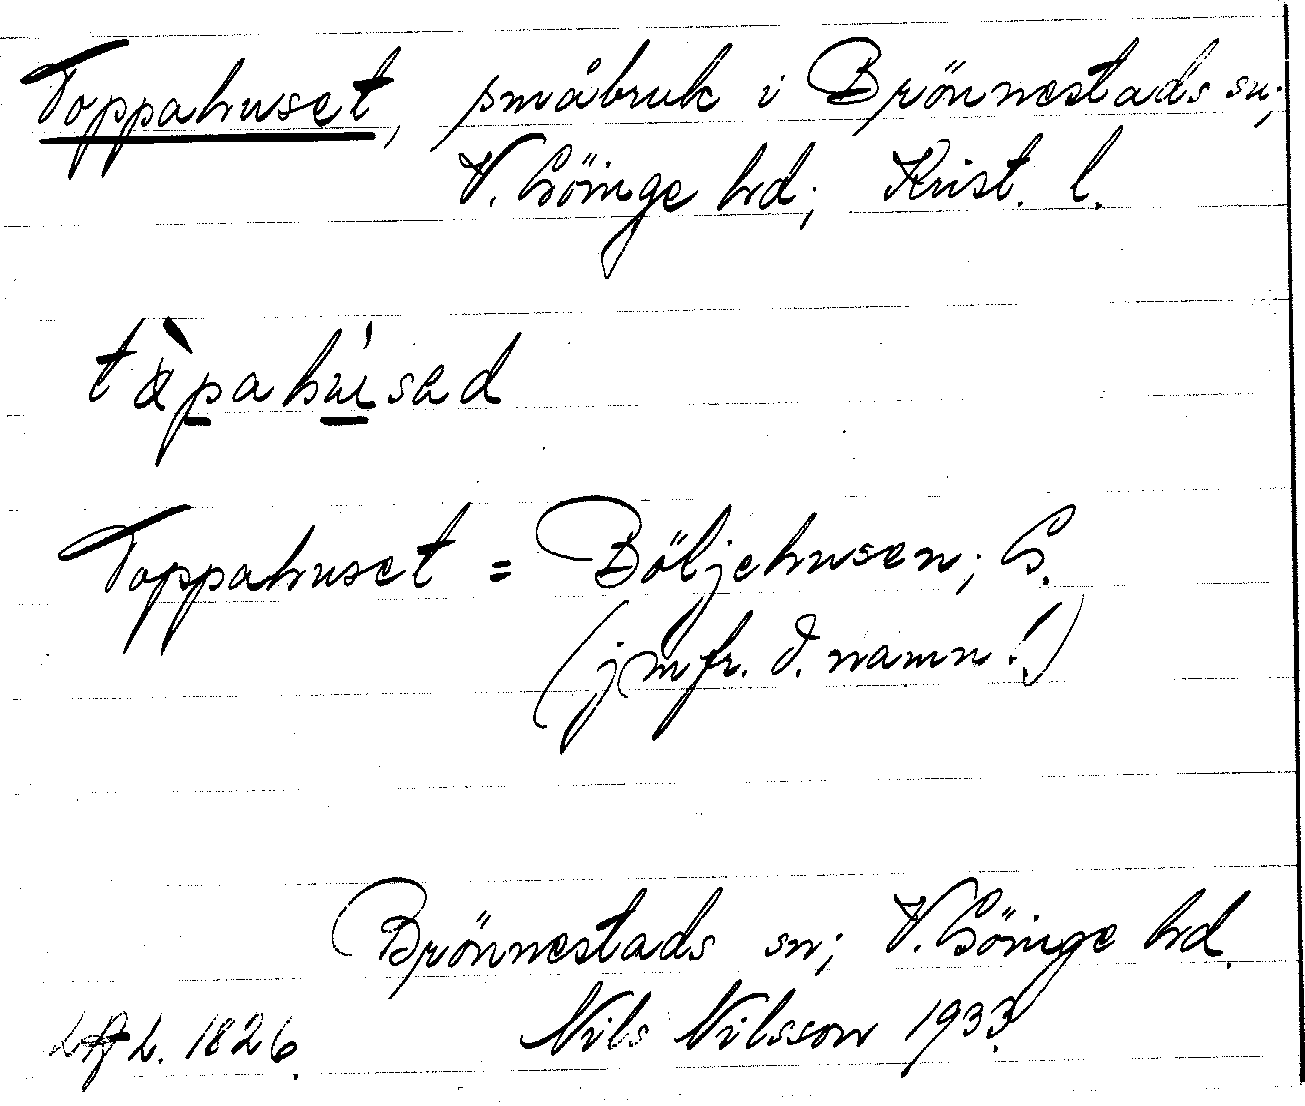 Toppahuset, småbruk i Brönnestads sn;
V. Göinge hd; Krist. l.
tàpahúsad
Toppahuset = Böljehusen; G.
(jmfr. d. namn!)
Brönnestads sn; V. Göinge hd.
1826. Nils Nilsson 1933.